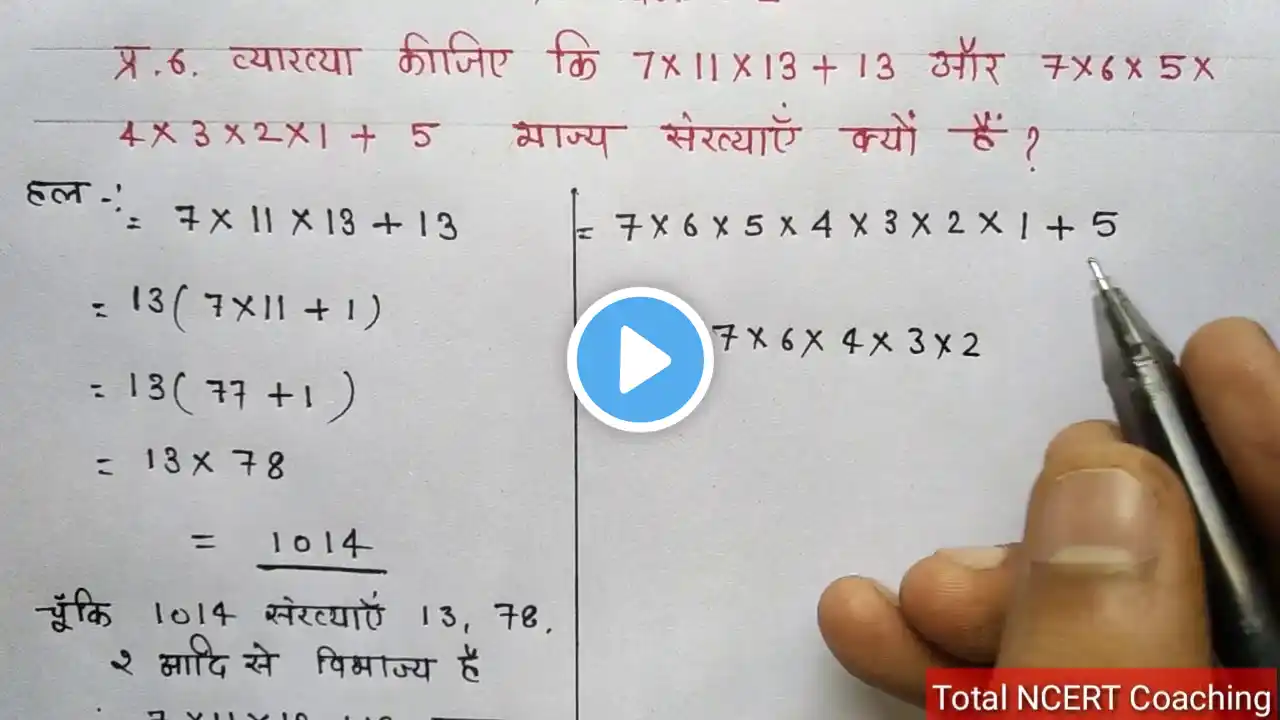 प्र.6. व्याख्या कीजिए कि 7×11×13+13 और 7×6×5×
4×3×2×1+ 5 भाज्य संख्याएँ क्यों हैं?
हल -:
= 7×11×13+13
= 13(7×11+1)
= 13(77+1)
= 13×78
= 1014
चूँकि 1014 संख्याएँ 13, 78.
2 आदि से विभाज्य है
= 7×6×5×4×3×2×1+5
7×6×4×3×2
Total NCERT Coaching